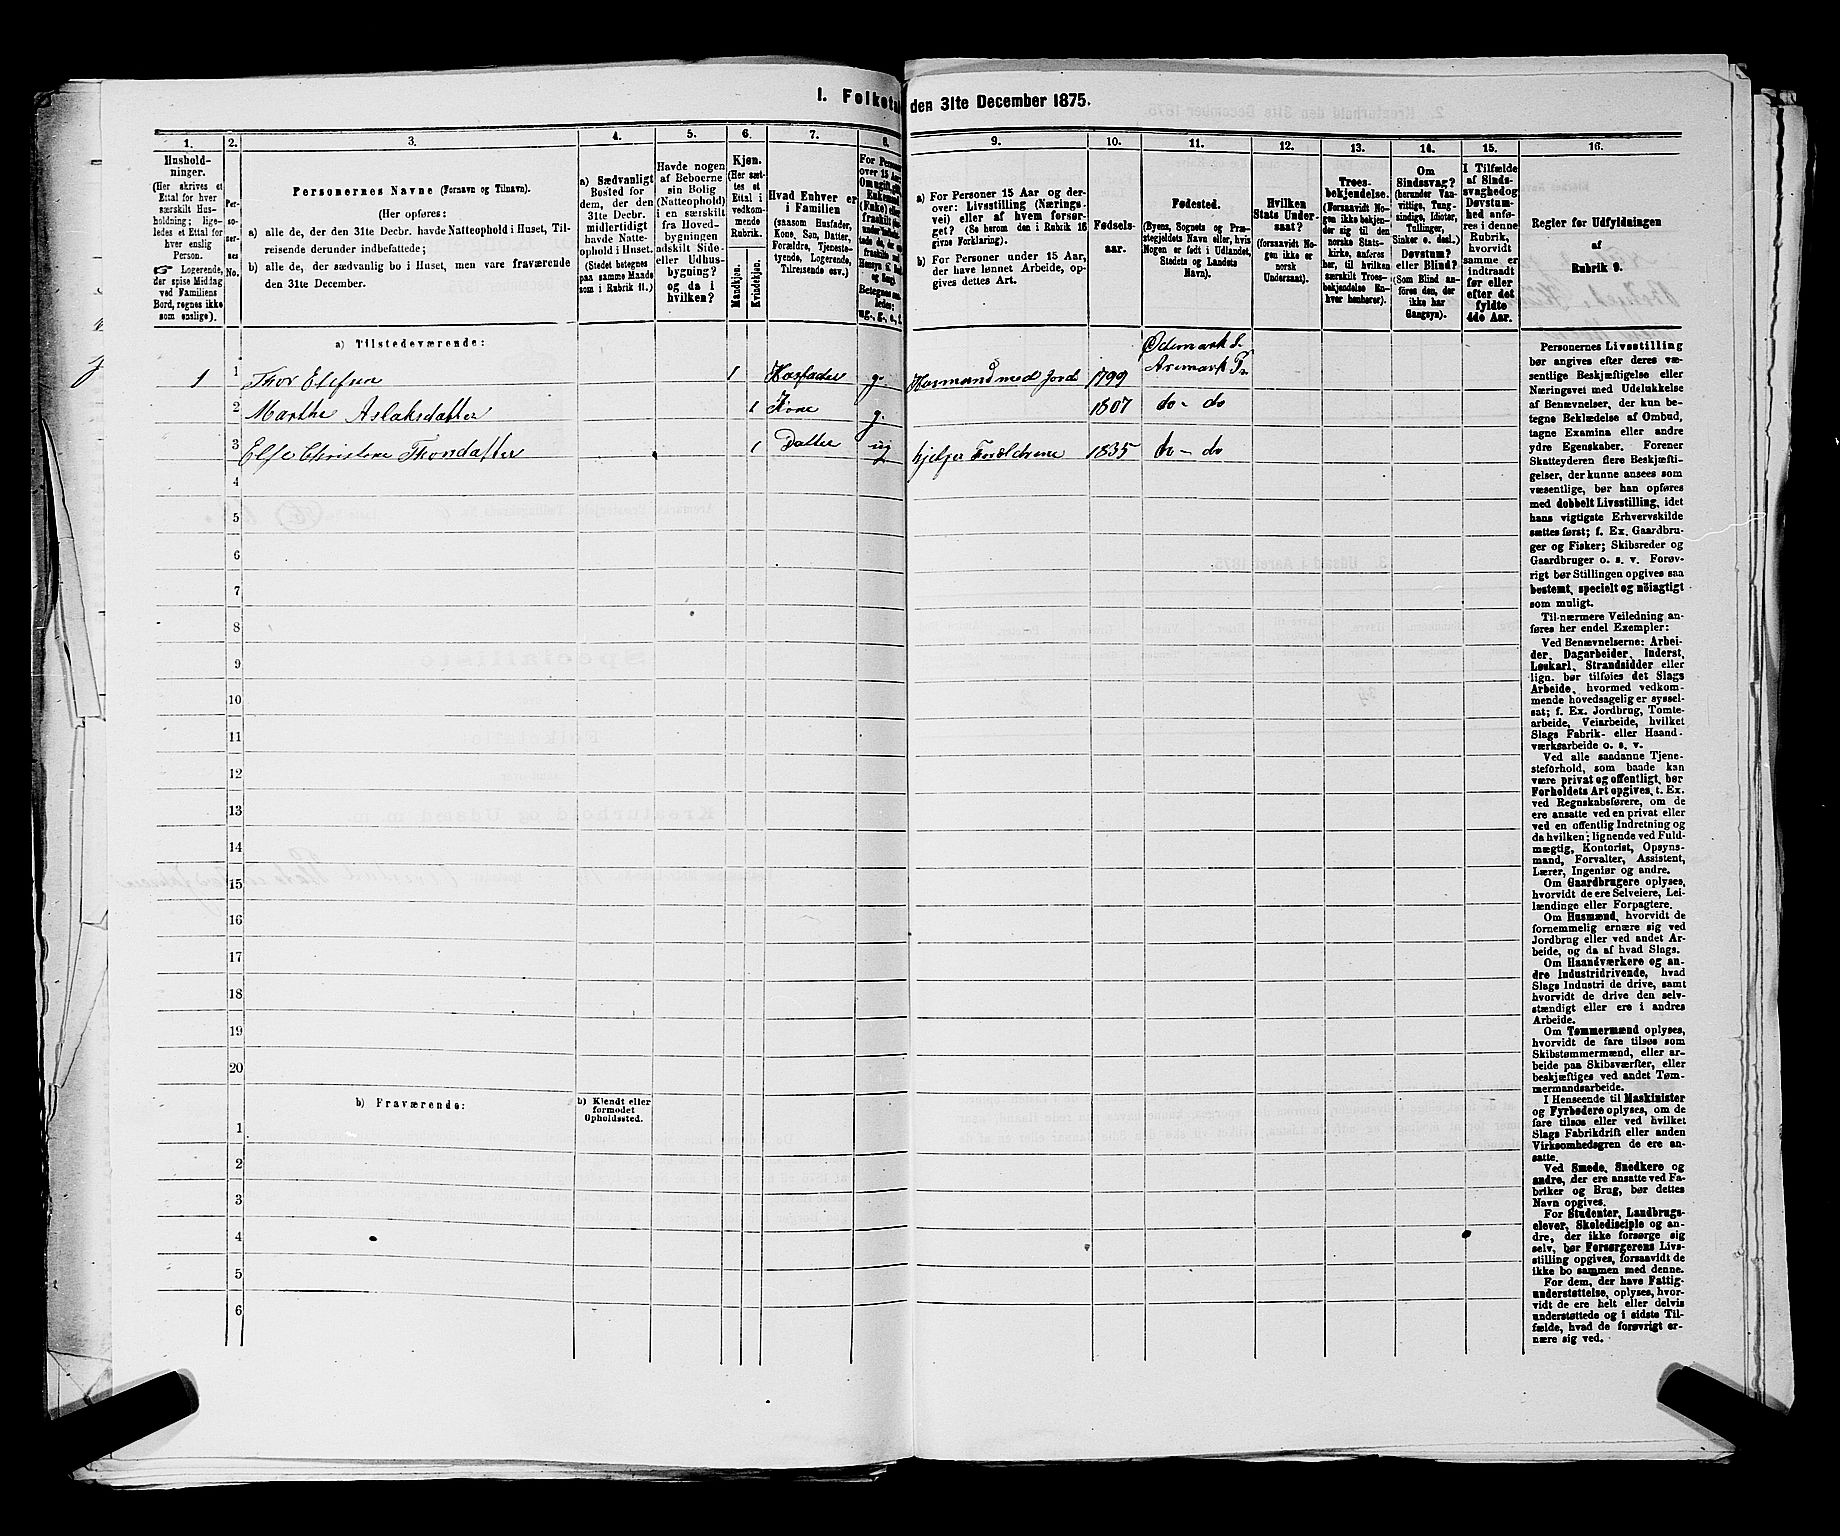 I. Folketæ den 31te December 1875.
1.
2.
3.
4.
5.
6.
7.
8.
9.
10.
11.
12.
13.
14.
15.
16.
Hushold-
ninger.
(Her skrives et
Ettal for hver
særskilt Hus-
holdning; lige-
ledes et Ettal for
hver enslig
Person.
Logerende,
der spise Middag
ved Familiens
Bord, regnes ikke
som enslige).
Per-
so-
ner-
nes
No.
Personernes Navne (Fornavn og Tilnavn).
(Her opføres:
a) alle de, der den 31te Decbr. havde Natteophold i Huset, Til-
reisende derunder indbefattede;
b) alle de, der sædvanlig bo i Huset, men vare fraværende
den 31te December.
a) Sædvanligt
Bosted for
dem, der den
31te Decbr.
midlertidigt
havde Natte-
ophold i Huset.
(Stedet betegnes
paa samme Maade
som i Rubrik 11.)
Havde nogen
af Beboerne
sin Bolig
(Natteophold)
i en særskilt
fra Hoved-
bygningen
adskilt Side-
eller Udhus-
bygning?
og da i
hvilken?
Kjøn.
(Her sæt-
tes et
Ettal i
vedkom-
mende
Rubrik.
Mandkjøn.
Kvindekjøn.
Hvad Enhver er
i Familien
(saasom Husfader,
Kone, Søn, Datter,
Forældre, Tjeneste-
tyende, Logerende,
Tilreisende osv.)
For Person
over 15 Aar:
a) For Personer 15 Aar og der-
over: Livsstilling (Nærings-
vei) eller af hvem forsør-
get? (Se herom den i Rubrik 16
givne Forklaring).
b) For Personer under 15 Aar,
der have lønnet Arbeide, op-
gives dettes Art.
Fødsels-
aar.
Fødested.
(Byens, Sognets og Præ-
stegjeldets Navn eller, hvis
Nogen er født i Udlandet,
Stedets og Landets
Navn).
Hvilken
Stats Under-
saat?
(forsaavidt No-
gen ikke er
norsk
Undersaat).
Troes-
bekjendelse.
(Forsaavidt No-
gen ikke bekjen-
der sig til den
norske Stats-
kirke, anføres
her, til hvilken
særskilt Troes-
bekjendelse En-
hver henhører).
Om
Sindssvag?
(herunder Van-
vittige, Tung-
sindige, Idioter,
Tullinger,
Sinker o. desl.)
Døvstum?
eller Blind?
(Som Blind an-
føres den, der
ikke har
Gangsyn).
I Tilfælde
af Sinds-
svaghed og
Døvstum-
hed anfø-
res i denne
Rubrik,
hvorvidt
samme er
indtraadt
før eller
efter det
fyldte
4de Aar.
Regler før Udfyldningen
af
Rubrik 9.
a) Tilstedeværende:
1 1 Thor Elefsen 1 Husfader g. Husmand med Jord 1799 Ødemark S. Aremark P.
2 Marthe Aslaksdatter 1 Kone g. 1807 do - do
3 Else Christine Thorsdatter 1 Datter ug hjelper Forældrene 1835 do - do
4
5
6
7
8
9
10
11
12
13
14
15
16
17
18
19
20
b) Fraværende:
b) Kjendt eller
formodet
Opholdssted.
1
2
3
4
5
6
Personernes Livsstilling
bør angives efter deres væ-
sentlige Beskjæftigelse eller
Næringsvei med Udelukkelse
af Benævnelser, der kun be-
tegne Beklædelse af Ombud,
tagne Examina eller andre
ydre Egenskaber. Forener
Skatteyderen flere Beskjæfti-
gelser, der kunne ansees som
væsentlige, bør han opføres
med dobbelt Livsstilling, idet
hans vigtigste Erhvervskilde
sættes først; f. Ex. Gaardbru-
ger og Fisker; Skibsreder og
Gaardbruger o. s. v. Forøv-
rigt bør Stillingen opgives saa
bestemt, specielt og nöiagtigt
som muligt.
Til nærmere Veiledning an-
føres her endel Exempler:
Ved Benævnelserne: Arbei-
der, Dagarbeider, Inderst,
Løskarl, Strandsidder eller
lign. bør tilføies det Slags
Arbeide, hvormed vedkom-
mende hovedsagelig er syssel-
sat; f. Ex. Jordbrug, Tomte-
arbeide, Veiarbeide, hvilket
Slags Fabrik- eller Haand-
værksarbeide o. s. v.
Ved alle saadanne Tjene-
steforhold, som baade kan
være privat og offentligt, bør
Forholdets Art opgives, t. Ex.
ved Regnskabsførere, om de
ere ansatte ved en privat eller
ved en offentlig Indretning og
da hvilken; lignende ved Fuld-
mægtig, Kontorist, Opsyns-
mand, Forvalter, Assistent,
Lærer, Ingeniør og andre.
Om Gaardbrugere oplyses,
hvorvidt de ere Selveiere, Lei-
lændinge eller Forpagtere.
Om Husmænd, hvorvidt de
fornemmelig ernære sig ved
Jordbrug eller ved andet Ar-
beide, og da af hvad Slags.
Om Haandværkere og an-
dre Industridrivende, hvad
Slags Industri de drive, samt
hvorvidt de drive den selv-
stændigt eller ere i andres
Arbeide.
Om Tømmermænd oplyses,
hvorvidt de fare tilsøs som
Skibstømmermænd, eller ar-
beide paa Skibsværfter, eller
beskjæftiges ved andet Tøm-
mermandsarbeide.
I Henseende til Maskinister
og Fyrbødere oplyses, om de
fare tilsøs eller ved hvilket
Slags Fabrikdrift eller anden
Virksomhedsgren de ere an-
satte.
Ved Smede, Snedkere og
andre, der ere ansatte ved Fa-
briker og Brug, bør dettes
Navn opgives.
For Studenter, Landbrugs-
elever, Skoledisciple og an-
dre, der ikke forsørge sig
selv, bør Forsørgerens Livs-
stilling opgives, forsaavidt de
ikke bo sammen med denne.
For dem, der have Fattig-
understøttelse, oplyses, hvor-
vidt de ere helt eller delvis
understøttede og i sidste Til-
fælde, hvad de forøvrigt er-
nære sig ved.